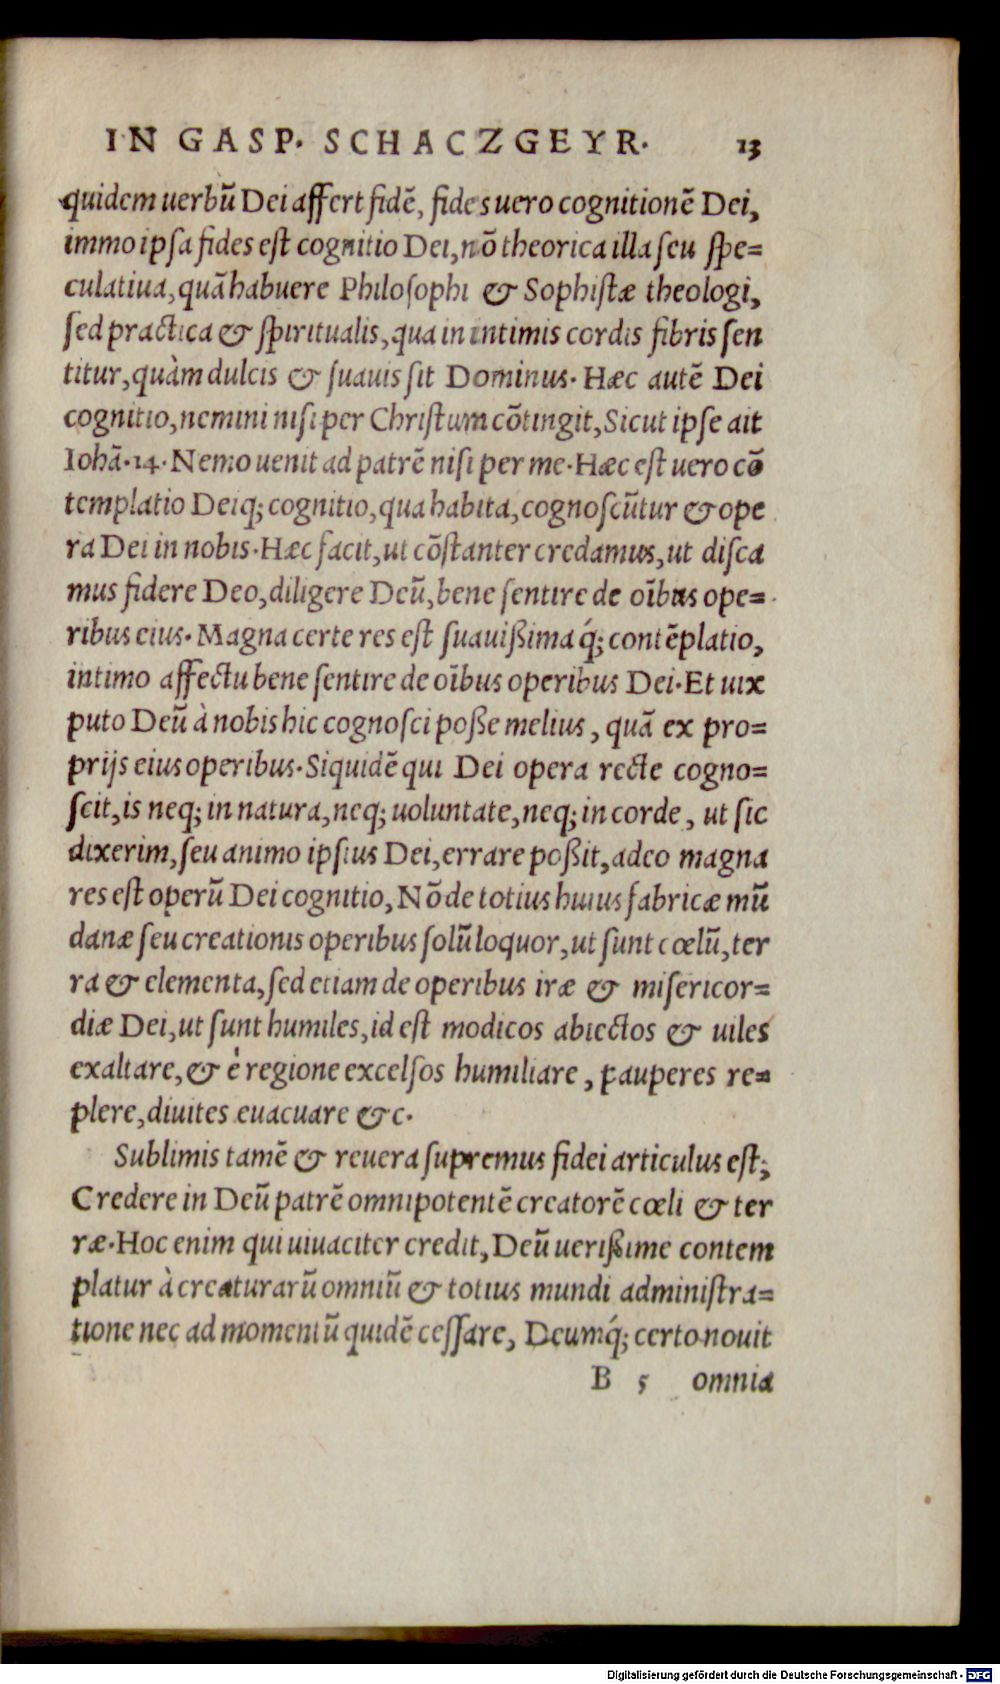 IN GASP. SCHACZGEYR. 13
quidem uerbū Dei affert fidē, fides uero cognitionē Dei,
immo ipſa fides eſt cognitio Dei, nō theorica illa ſeu ſpe=
culatiua, quā habuere Philoſophi & Sophiſtæ theologi,
ſed practica & ſpiritualis, qua in intimis cordis fibris ſen
titur, quàm dulcis & ſuauis ſit Dominus. Hæc autē Dei
cognitio, nemini niſi per Chriſtum cōtingit, Sicut ipſe ait
Iohā. 14. Nemo uenit ad patrē niſi per me. Hæc eſt uero cō
templatio Deiq; cognitio, qua habita, cognoſcūtur & ope
ra Dei in nobis. Hæc facit, ut cōſtanter credamus, ut diſca
mus fidere Deo, diligere Deū, bene ſentire de oībus ope=
ribus eius. Magna certe res eſt ſuauißima q́; contēplatio,
intimo affectu bene ſentire de oībus operibus Dei. Et uix
puto Deū à nobis hic cognoſci poße melius, quā ex pro=
prijs eius operibus. Siquidē qui Dei opera recte cogno=
ſcit, is neq; in natura, neq; uoluntate, neq; in corde, ut ſic
dixerim, ſeu animo ipſius Dei, errare poßit, adeo magna
res eſt operū Dei cognitio, Nō de totius huius fabricæ mū
danæ ſeu creationis operibus ſolū loquor, ut ſunt cœlū, ter
ra & elementa, ſed etiam de operibus iræ & miſericor=
diæ Dei, ut ſunt humiles, id eſt modicos abiectos & uiles
exaltare, & è regione excelſos humiliare, pauperes re=
plere, diuites euacuare &c.
Sublimis tamē & reuera ſupremus fidei articulus eſt;
Credere in Deū patrē omnipotentē creatorē cœli & ter
ræ. Hoc enim qui uiuaciter credit, Deū uerißime contem
platur à creaturarū omniū & totius mundi adminiſtra=
tione nec ad momentū quidē ceſſare, Deumq́; certo nouit
B 5 omnia
Digitalisierung gefördert durch die Deutsche Forschungsgemeinschaft - DFG